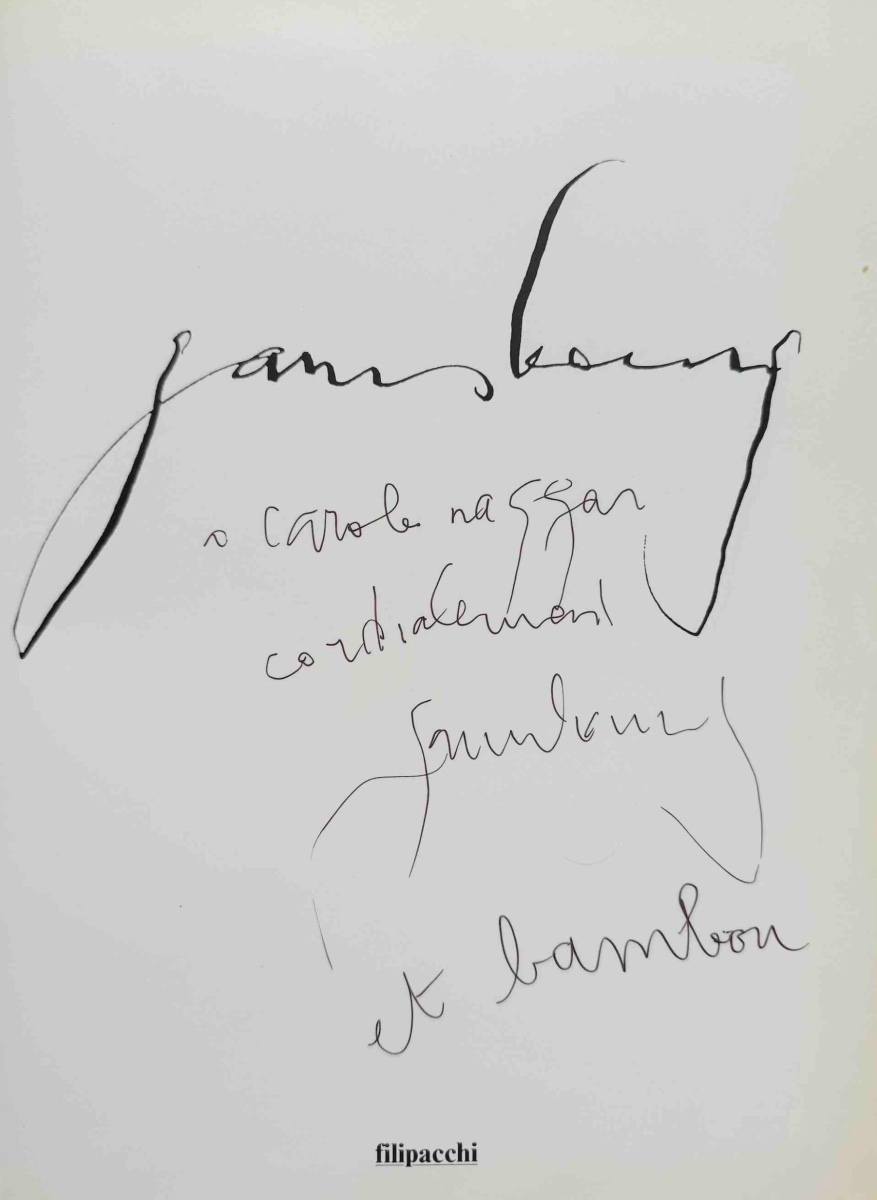 gainsbourg
à carole naggar
cordialement
gainsbourg
et bambou
filipacchi